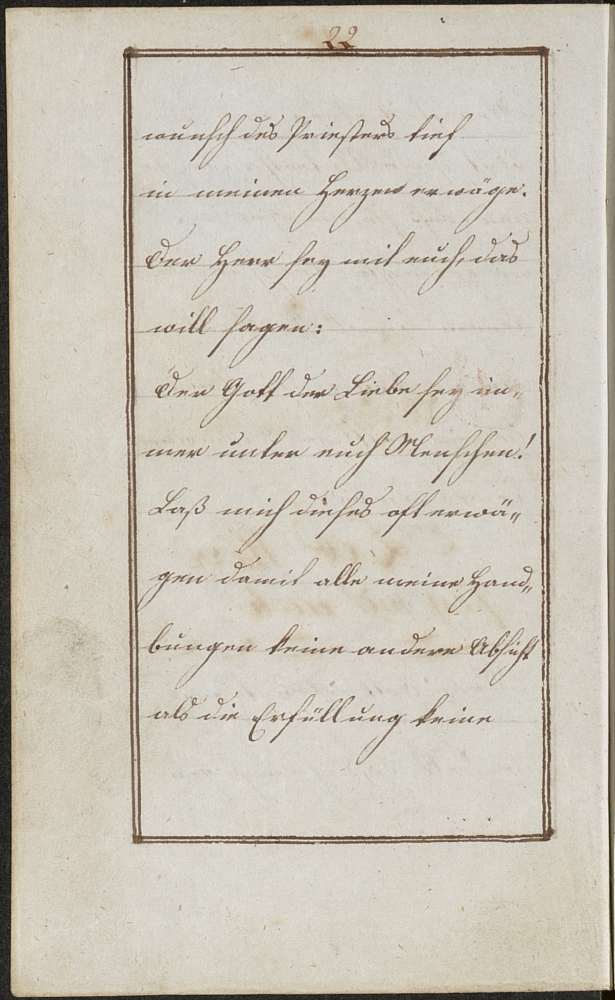 22
wunsch des Priesters tief
in meinen Herzen erwäge.
Der Herr sey mit euch, das
will sagen:
Der Gott der Liebe sey im„
mer unter euch Menschen!
Laß mich dieses oft erwä„
gen damit alle meine Hand„
lungen keine andere Absicht
als die Erfüllung keine